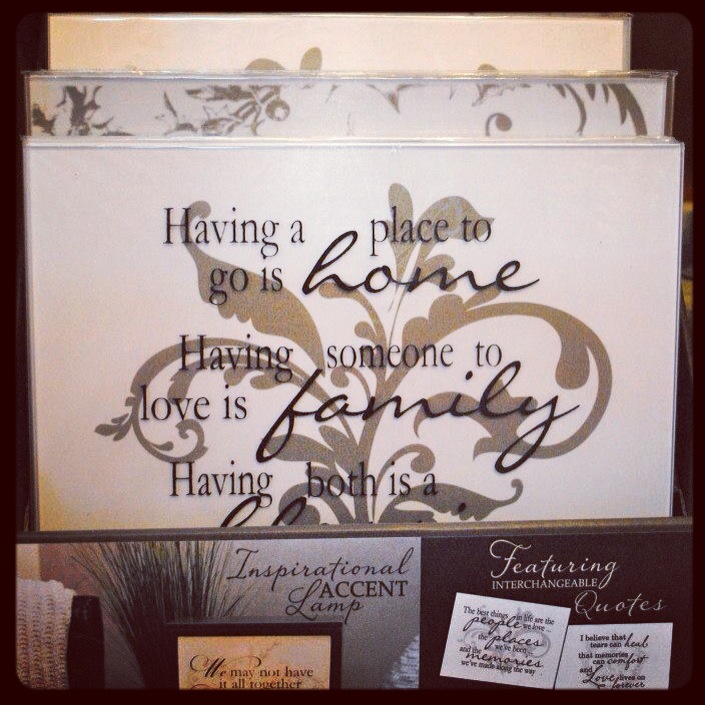 Having a place to
go is home
Having someone to
love is family
Having both is a
Inspirational
ACCENT
Lamp
We may not have
it all together
Featuring
INTERCHANGEABLE
Quotes
The best things in life are the
people we love...
the places
we've been
and the memories
we've made along the way
I believe that
tears can heal
that memories
can comfort
and Love lives on
forever